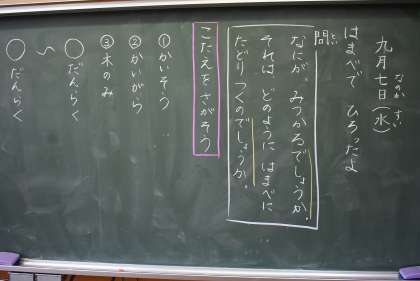 九月七日(水)
なのか すい
はまべで ひろったよ
問
とい
なにが、みつかるでしょうか。
それは どのように はまべに
たどりつくのでしょうか。
こたえをさがそう
①かいそう
②かいがら
③木のみ
○だんらく
〜
○だんらく